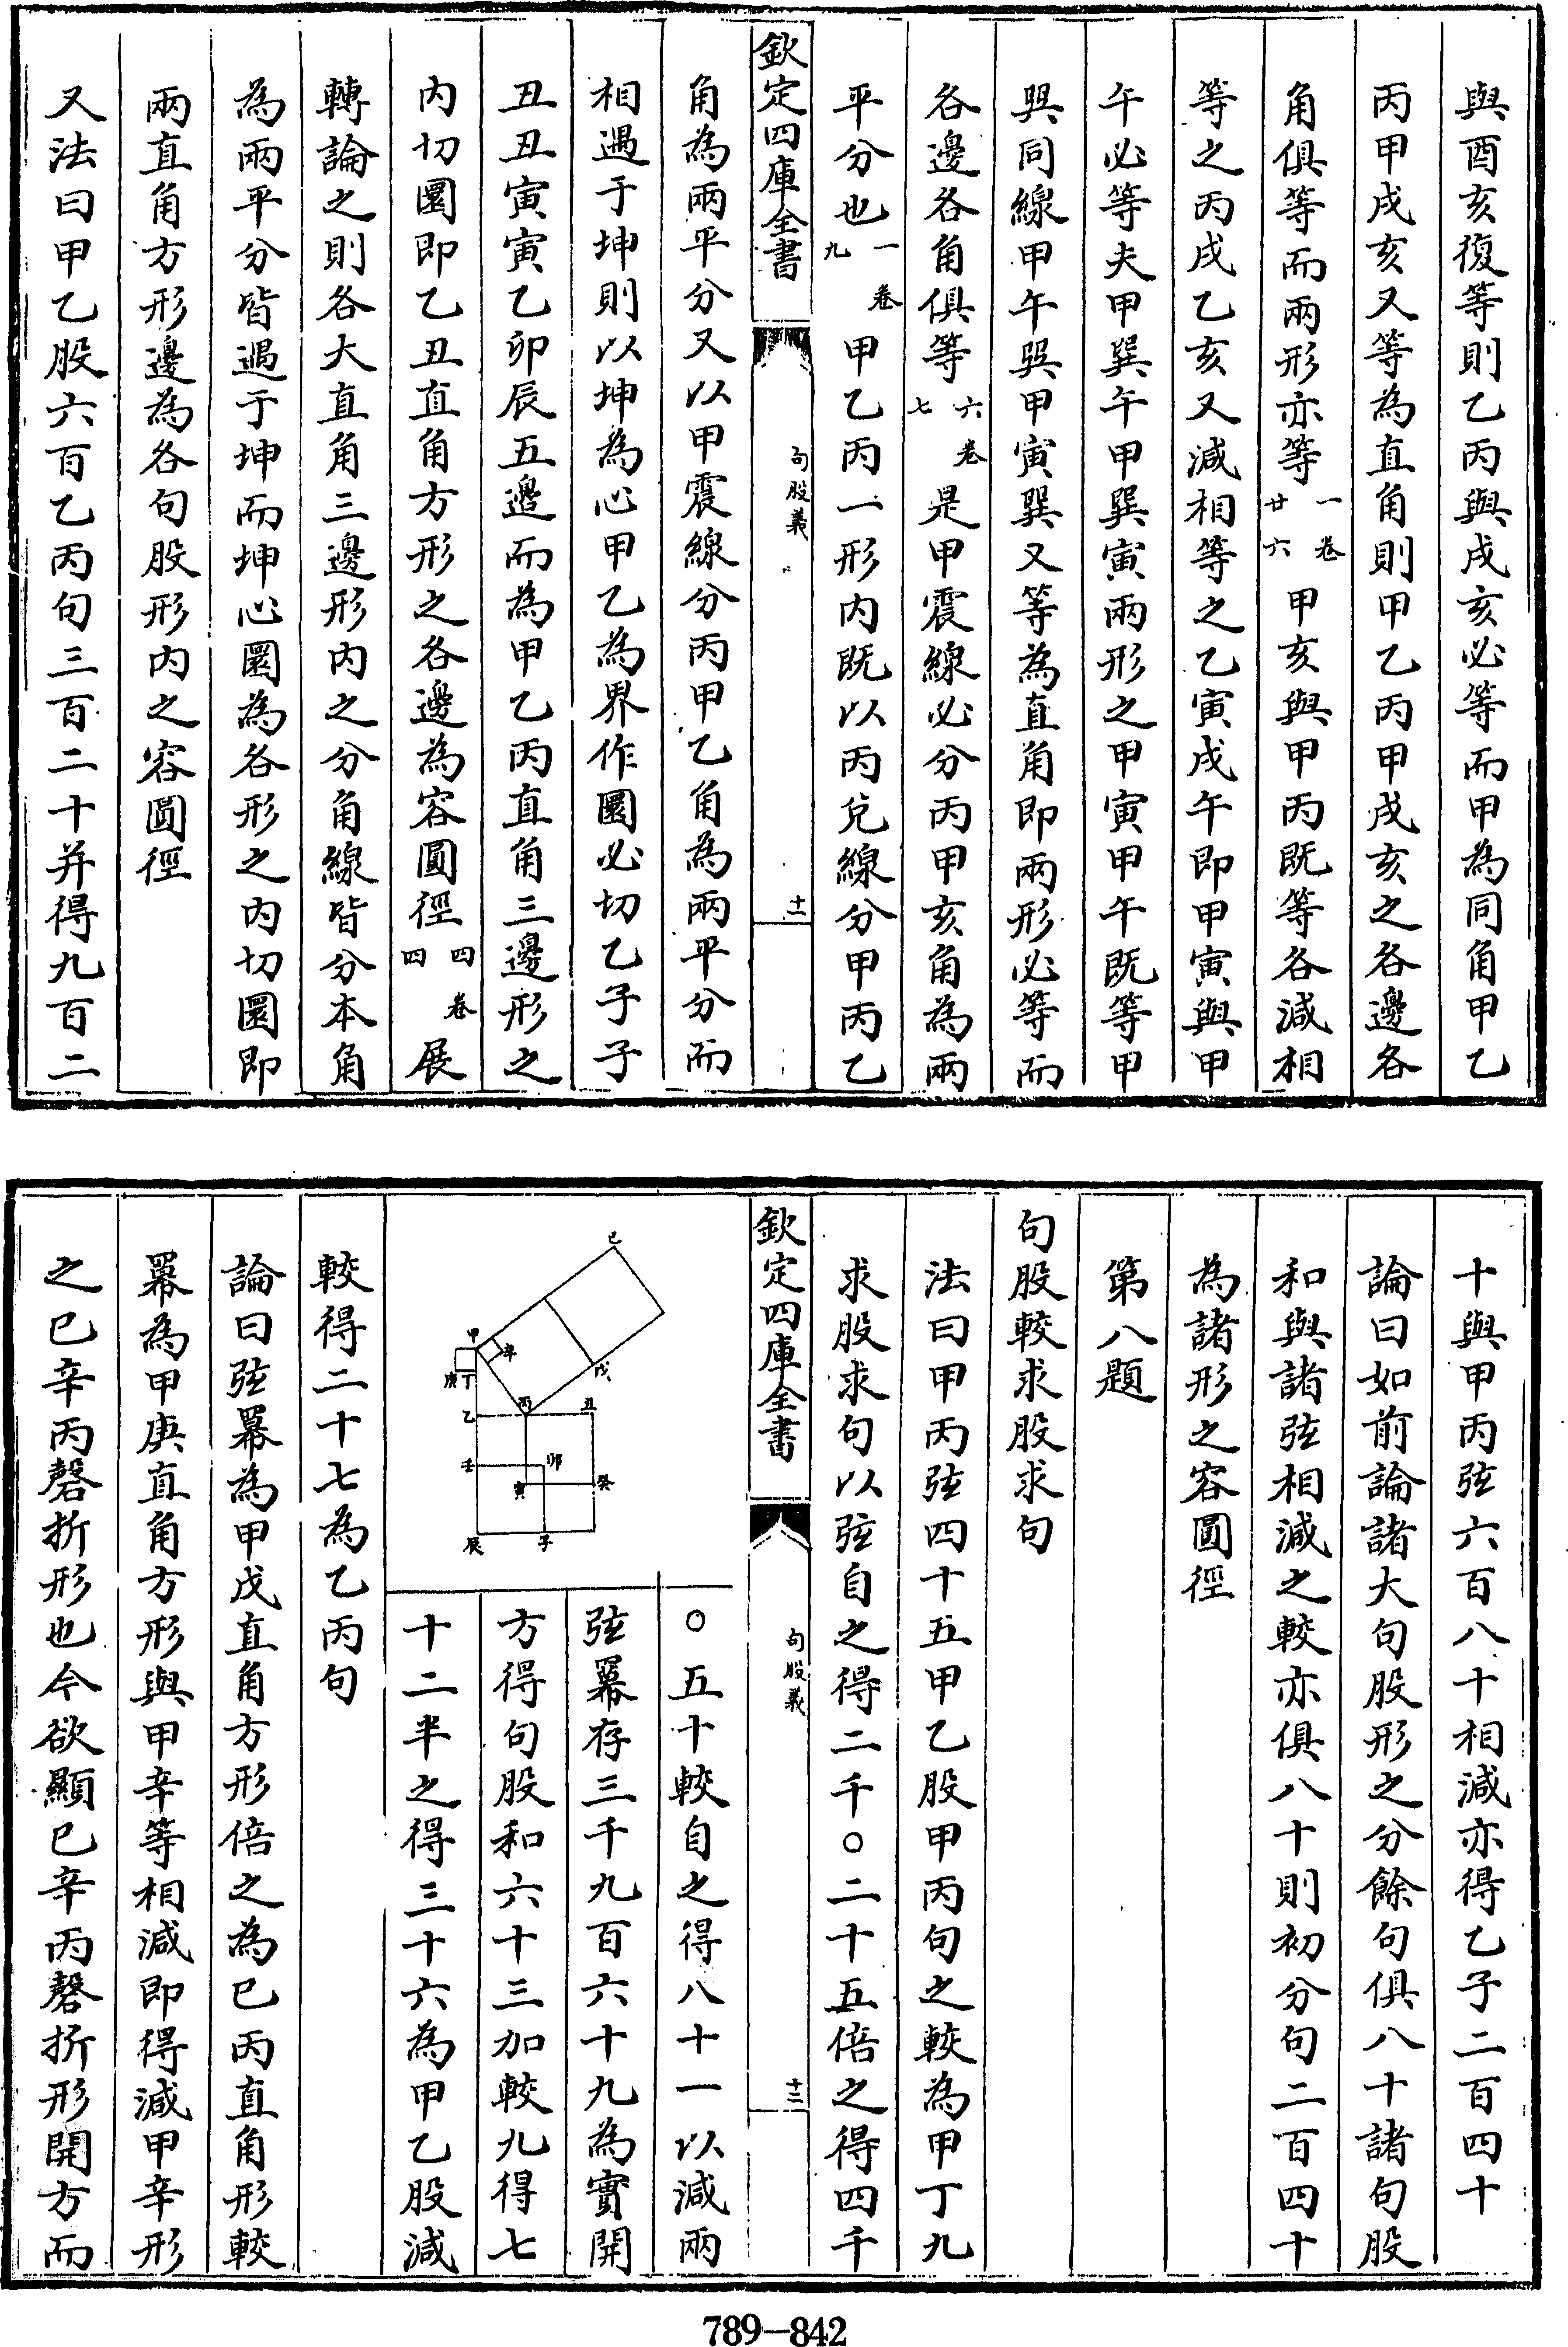 與酉亥復等則乙丙與戌亥必等而甲為同角甲乙
丙甲戌亥又等為直角則甲乙丙甲戌亥之各邊各
角俱等而兩形亦等一卷廿六甲亥與甲丙既等各減相
等之丙戌乙亥又減相等之乙寅戌午即甲寅與甲
午必等夫甲巽午甲巽寅兩形之甲寅甲午既等甲
巽同線甲午巽甲寅巽又等為直角即兩形必等而
各邊各角俱等六卷七是甲震線必分丙甲亥角為兩
平分也一卷九甲乙丙一形內既以丙兌線分甲丙乙
欽定四庫全書
句股義
十一
角為兩平分又以甲震線分丙甲乙角為兩平分而
相遇于坤則以坤為心甲乙為界作圜必切乙子子
丑丑寅寅乙卯辰五邊而為甲乙丙直角三邊形之
內切圜即乙丑直角方形之各邊為容圓徑四卷四展
轉論之則各大直角三邊形內之分角線皆分本角
為兩平分皆遇于坤而坤心圜為各形之內切圜即
兩直角方形邊為各句股形內之容圓徑
又法曰甲乙股六百乙丙句三百二十并得九百二
十與甲丙弦六百八十相減亦得乙子二百四十
論曰如前論諸大句股形之分餘句俱八十諸句股
和與諸弦相減之較亦俱八十則初分句二百四十
為諸形之容圓徑
第八題
句股較求股求句
法曰甲丙弦四十五甲乙股甲丙句之較為甲丁九
求股求句以弦自之得二千○二十五倍之得四千
欽定四庫全書
句股義
十二
己
甲
辛
庚
丁
戊
乙
丙
丑
壬
卯
寅
癸
辰
子
○五十較自之得八十一以減兩
弦冪存三千九百六十九為實開
方得句股和六十三加較九得七
十二半之得三十六為甲乙股減
較得二十七為乙丙句
論曰弦冪為甲戊直角方形倍之為己丙直角形較
冪為甲庚直角方形與甲辛等相減即得減甲辛形
之己辛丙磬折形也今欲顯己辛丙磬折形開方而
789-842